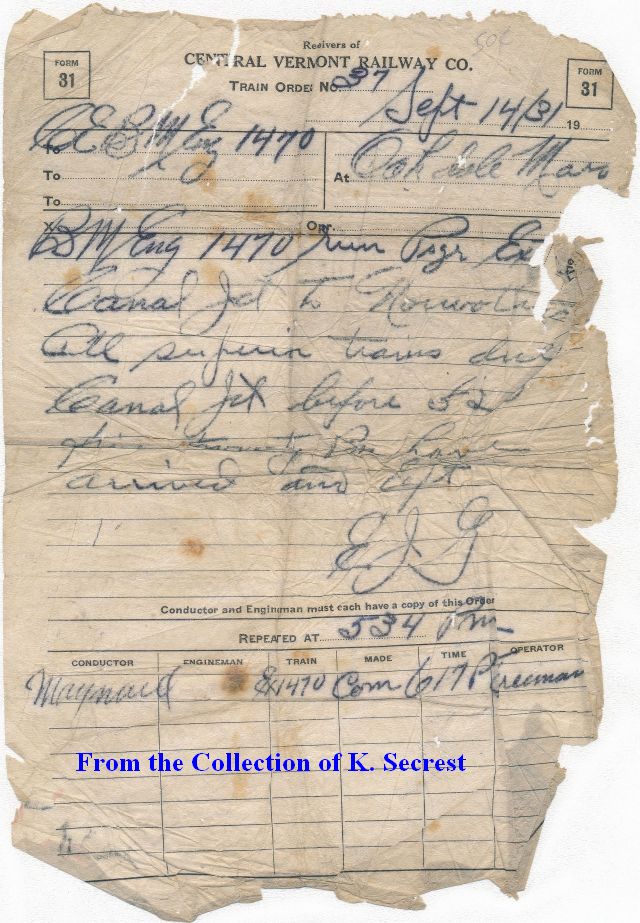 50¢
Receivers of
CENTRAL VERMONT RAILWAY CO.
FORM 31
FORM 31
TRAIN ORDER No. 37
Sept 14/31 19
To C&E B M Eng 1470
To
To
At Oakdale Mass
X Opr.
B M Eng 1470 run Psgr Ex
Canal Jct to Norwottu
All superior trains due
Canal Jct before 52
five twenty Pm have
arrived and left
E J G
Conductor and Engineman must each have a copy of this Order
REPEATED AT 534 Pm
CONDUCTOR ENGINEMAN TRAIN MADE TIME OPERATOR
Maynard Ex 1470 Com 617 P Freeman
From the Collection of K. Secrest